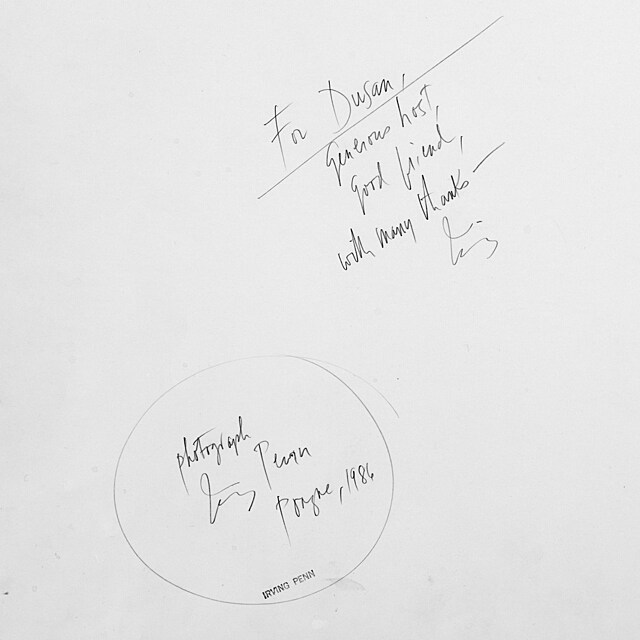 For Dusan,
generous host,
good friend,
with many thanks —
Irving
photograph
Irving Penn
Prague, 1986
IRVING PENN